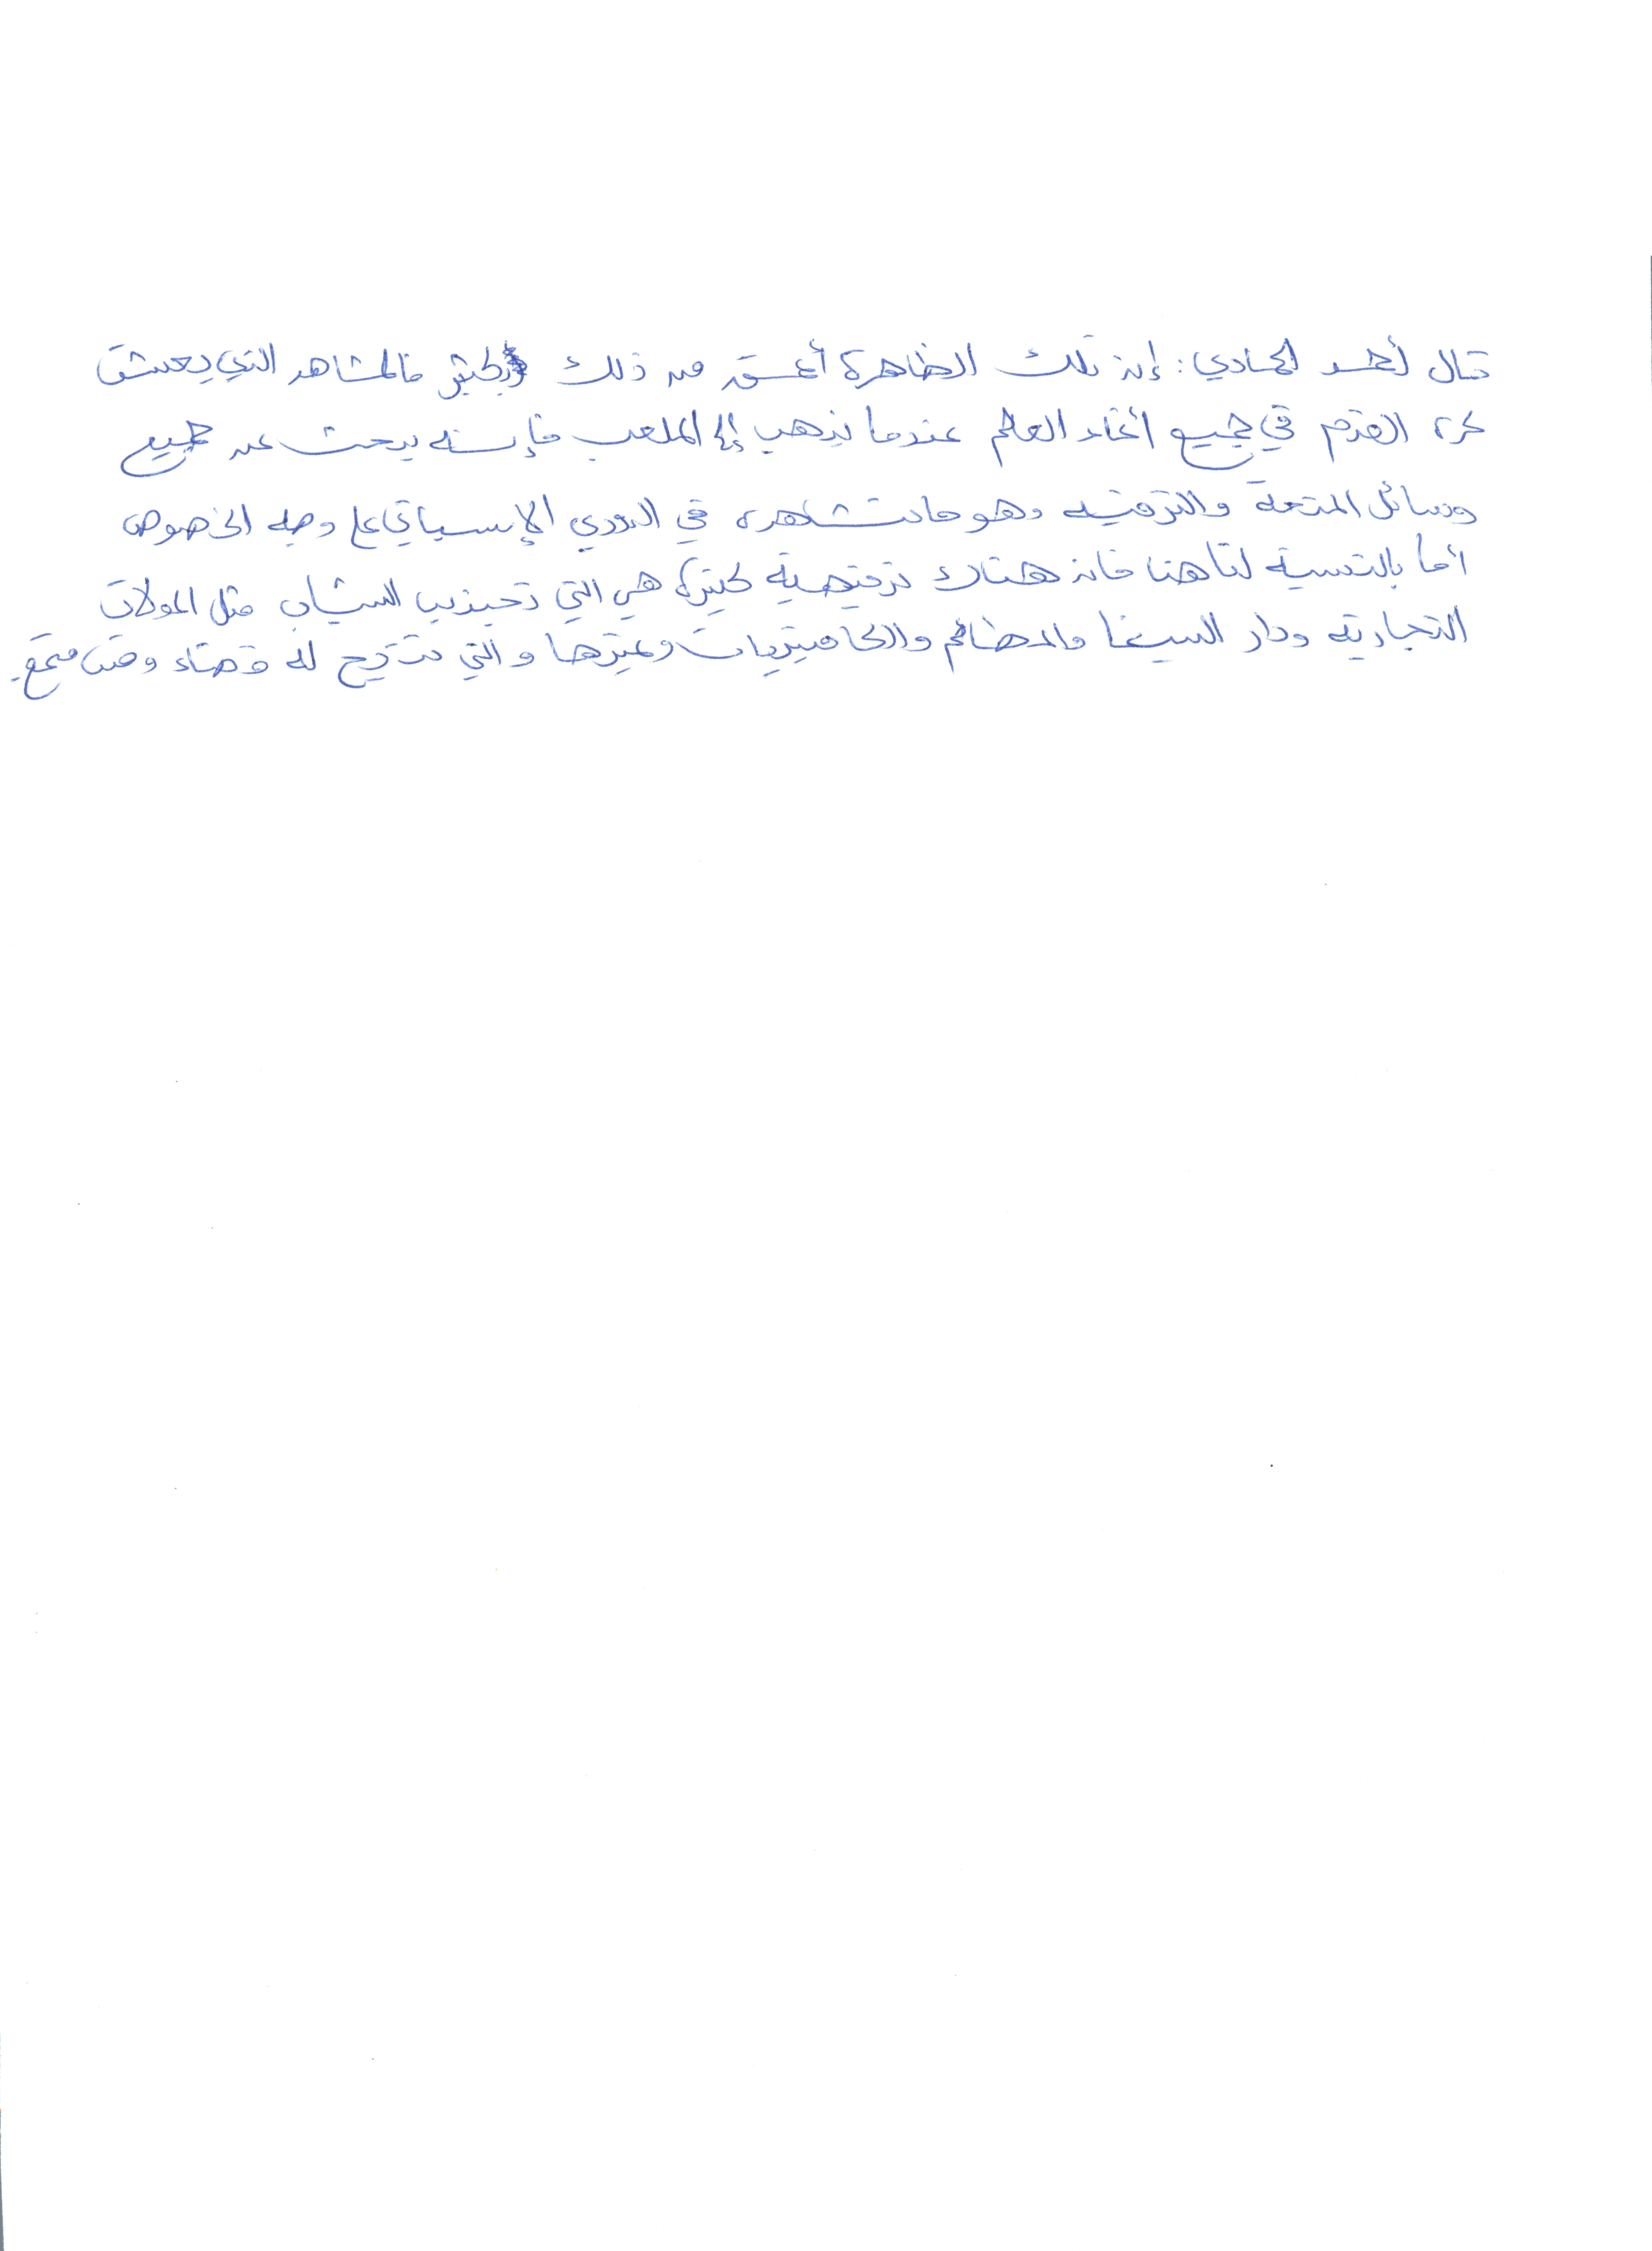 قال أحمد الحمادي: إن تلك الظاهرة أعمق من ذلك بكثير فالمشاهد الذي يعشق
كرة القدم في جميع أنحاء العالم عندما يذهب إلى الملعب فإنه يبحث عن جميع
وسائل المتعة والترفيه وهو مانشاهده في الدوري الإسباني على وجه الخصوص
أما بالنسبة لنا هنا فان هناك ترفيهية كثيرة هي التي تجذب الشباب مثل المولات
التجارية ودار السينما والمطاعم والكافيتريات وغيرها والتي تتيح له قضاء وقت ممتع.